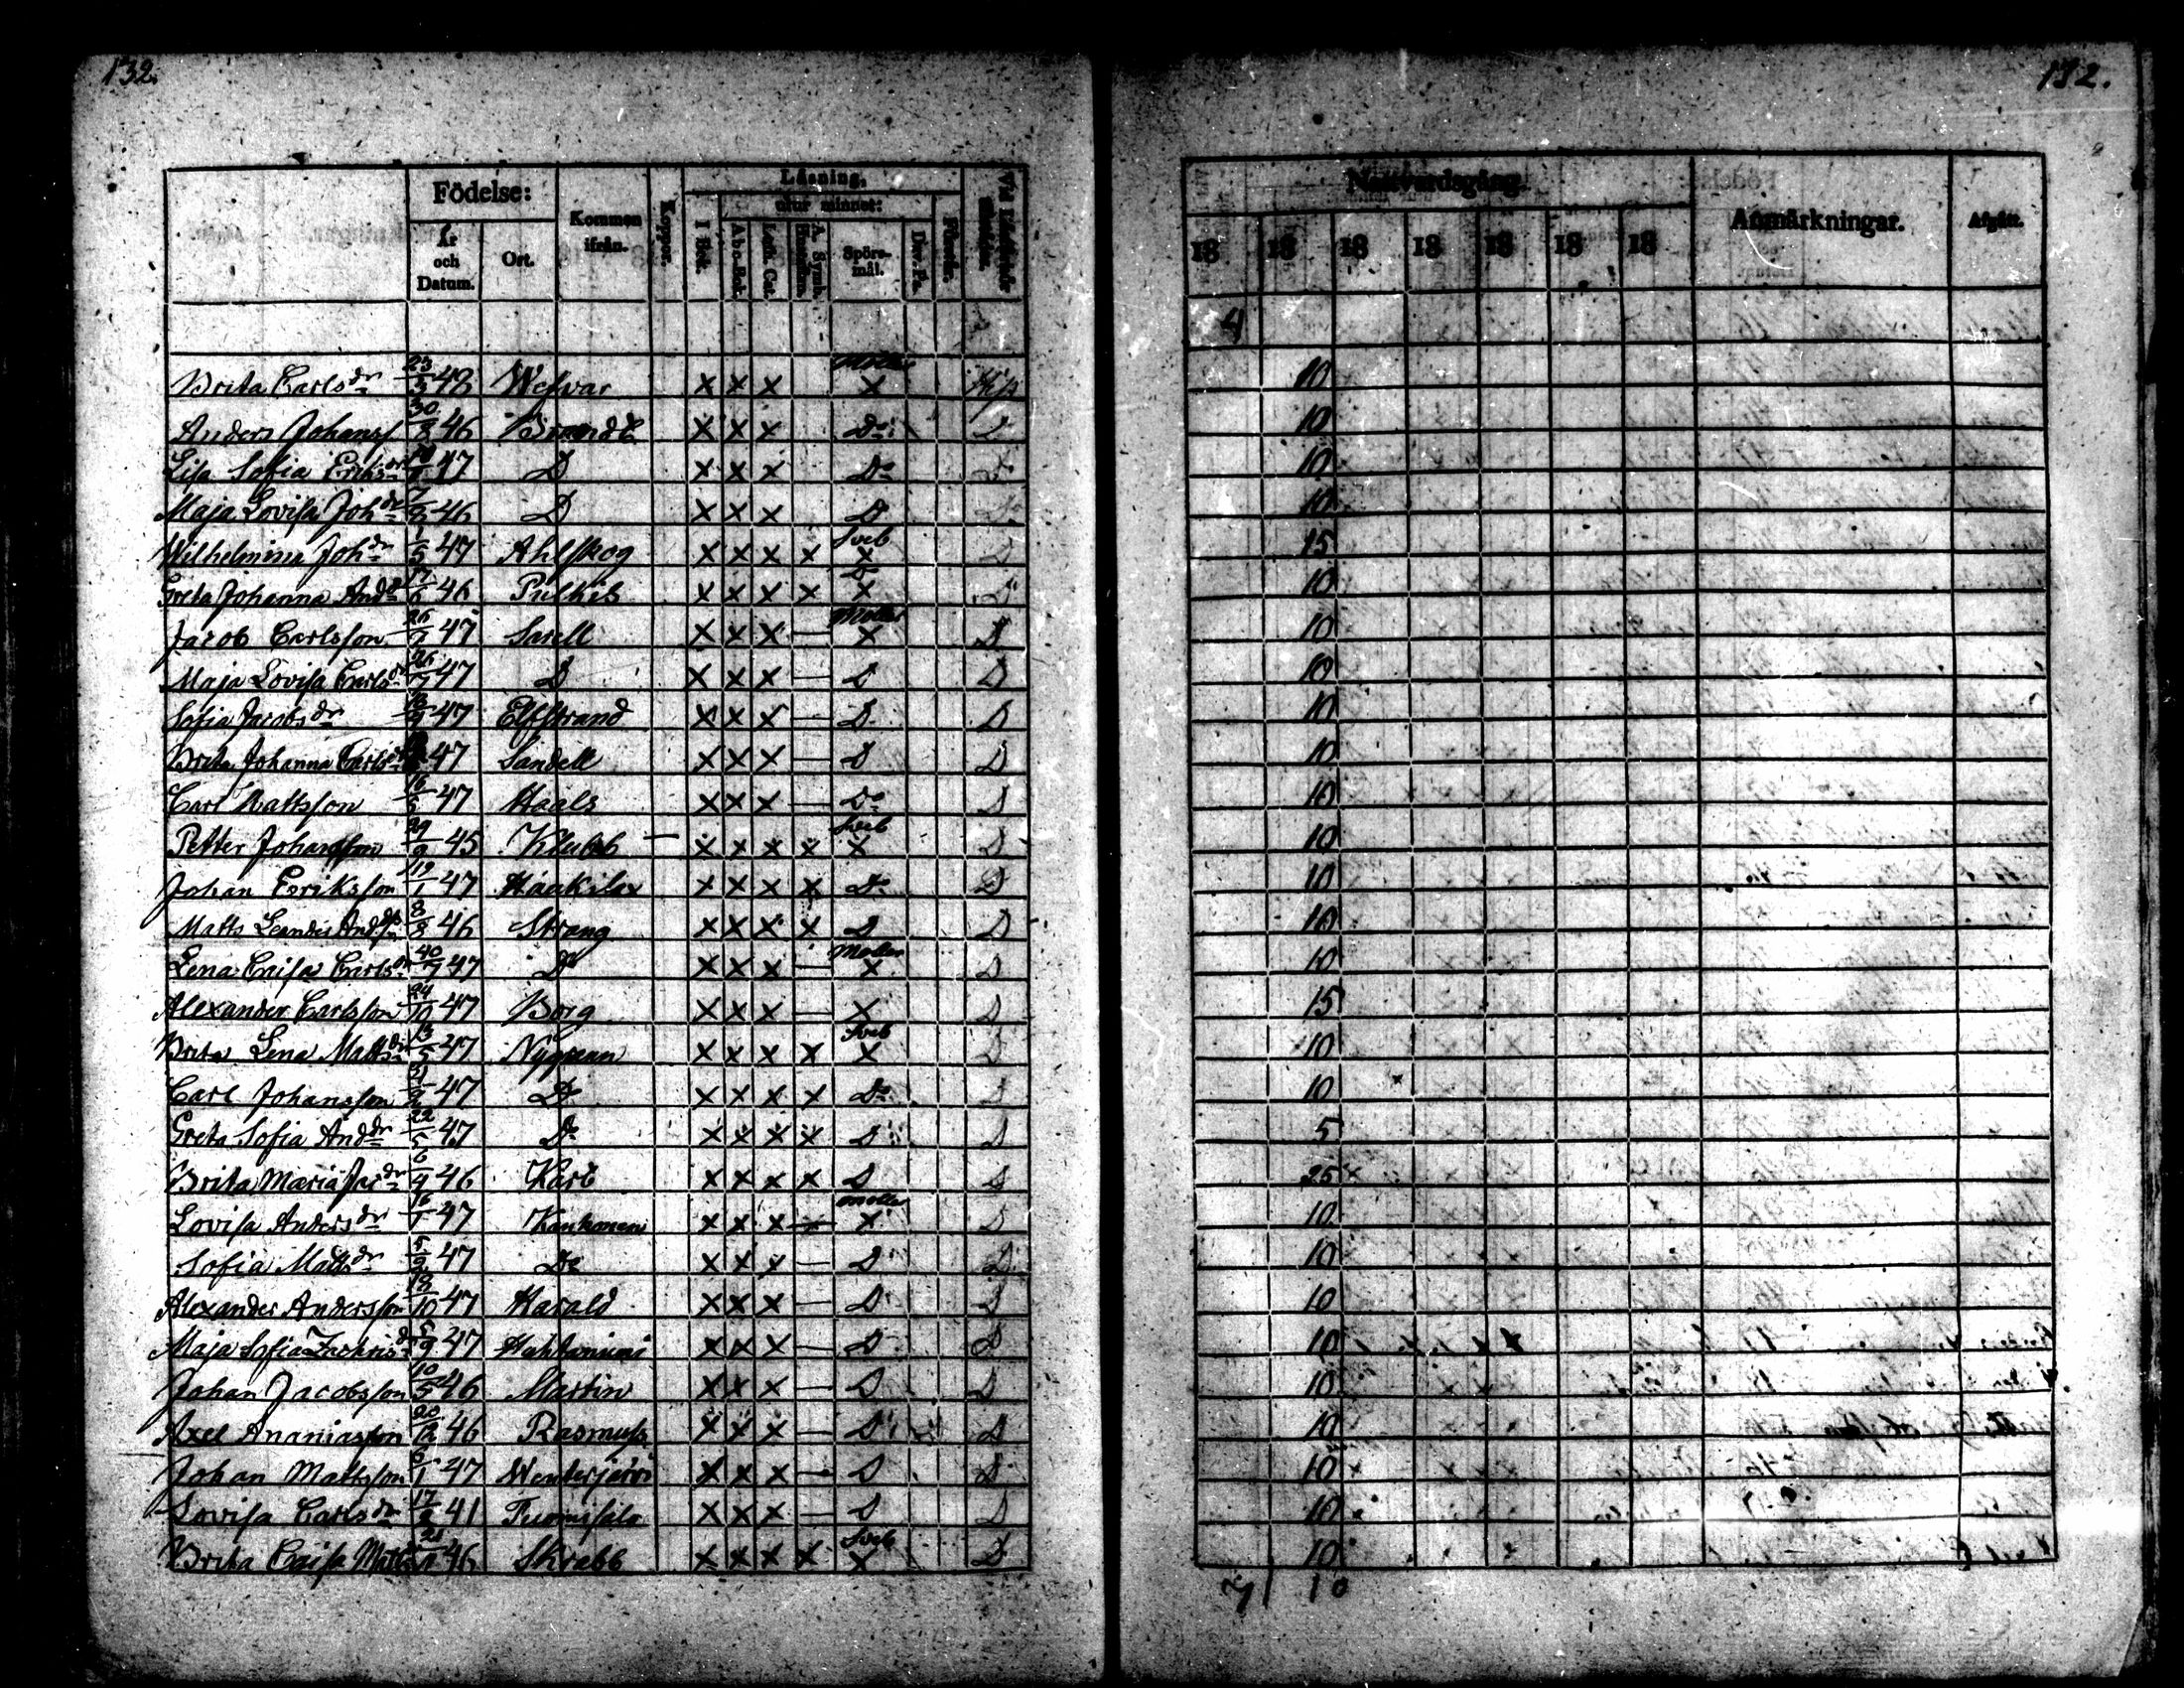 132.
Födelse:
Kommen ifrån.
Koppor.
Läsning,
utur minnet:
År och Datum.
Ort.
I Bok.
A b c-Bok.
Luth. Cat.
Spörsmål.
Dav. Ps.
Brita Carlsdr 23/5 48 Wesvar x x x x
Anders Johanss 30/8 46 x x x Do
Lisa Sofia Eriksdr 47 D x x x Do
Maja Lovisa Johdr 7/8 46 D x x x D
Wilhelmina Johdr 1/5 47 Ahlskog x x x x Sveb x D
Greta Johanna Anddr 17/6 46 Pulkis x x x x Do x D
Jacob Carlsson 26/7 47 Sarell x x x — Moller x D
Maja Lovisa Carlsdr 26/7 47 D x x x — D D
Sofia Jacobsdr 47 Elfstrand x x x — D D
Brita Johanna Carlsdr 47 Sandell x x x — D D
Carl Mattsson 16/5 47 Haals x x x — Do D
Petter Johansson 29/9 45 Klubb x x x x Sveb x D
Johan Eriksson 47 Haakila x x x x Do D
Matts Leander Ands 8/8 46 Strang x x x x D D
Lena Caisa Carlsdr 47 Do x x x — Moller x D
Alexander Carlsson 24/10 47 Borg x x x — x D
Brita Lena Mattsdr 13/5 47 Nygrean x x x x Sveb x D
Carl Johansson 47 Do x x x x Do D
Greta Sofia Anddr 22/5 47 Do x x x x D D
Brita Maria Jacdr 6/4 46 Karb x x x x D D
Lovisa Andersdr 16/1 47 Kankonen x x x — Moller x D
Sofia Mattsdr 5/2 47 Do x x x — D D
Alexander Andersson 18/10 47 Harald x x x — D D
Maja Sofia Zachrisdr 5/9 47 Huhtaniemi x x x — D D
Johan Jacobsson 10/5 46 Martin x x x — D D
Axel Ananiasson 20/12 46 Rasmuss x x x — D D
Johan Mattsson 6/1 47 Wenterjärvi x x x — D D
Lovisa Carlsdr 17/2 41 Tuomisalo x x x D D
Brita Caisa Matts 46 Skrabb x x x x Sveb x D
132.
Nattvardsgång.
Anmärkningar.
Afgått.
18 18 18 18 18 18 18
4
10
10
10
10
15
10
10
10
10
10
10
10
10
10
10
15
10
10
5
25
10
10
10
10
10
10
10
10
10
71 10